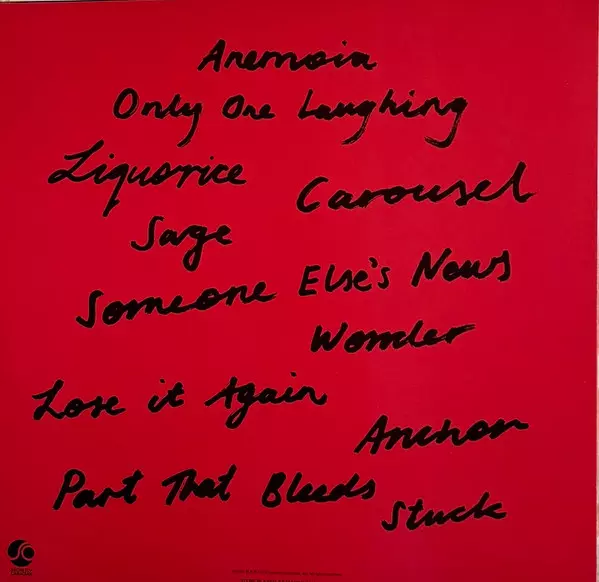 Anemoia
Only One Laughing
Liquorice
Carousel
Sage
Someone Else's News
Wonder
Lose it Again
Anchor
Part That Bleeds
Stuck